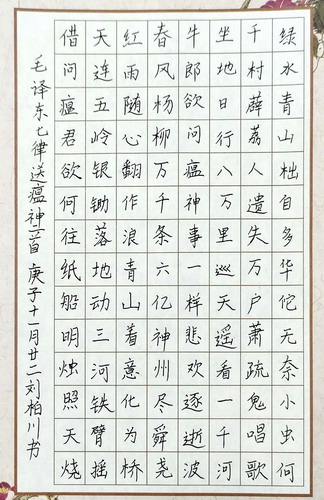 绿水青山枉自多华佗无奈小虫何
千村薜荔人遗失万户萧疏鬼唱歌
坐地日行八万里巡天遥看一千河
牛郎欲问瘟神事一样悲欢逐逝波
春风杨柳万千条六亿神州尽舜尧
红雨随心翻作浪青山着意化为桥
天连五岭银锄落地动三河铁臂摇
借问瘟君欲何往纸船明烛照天烧
毛泽东七律送瘟神二首 庚子十一月廿二刘柏川书